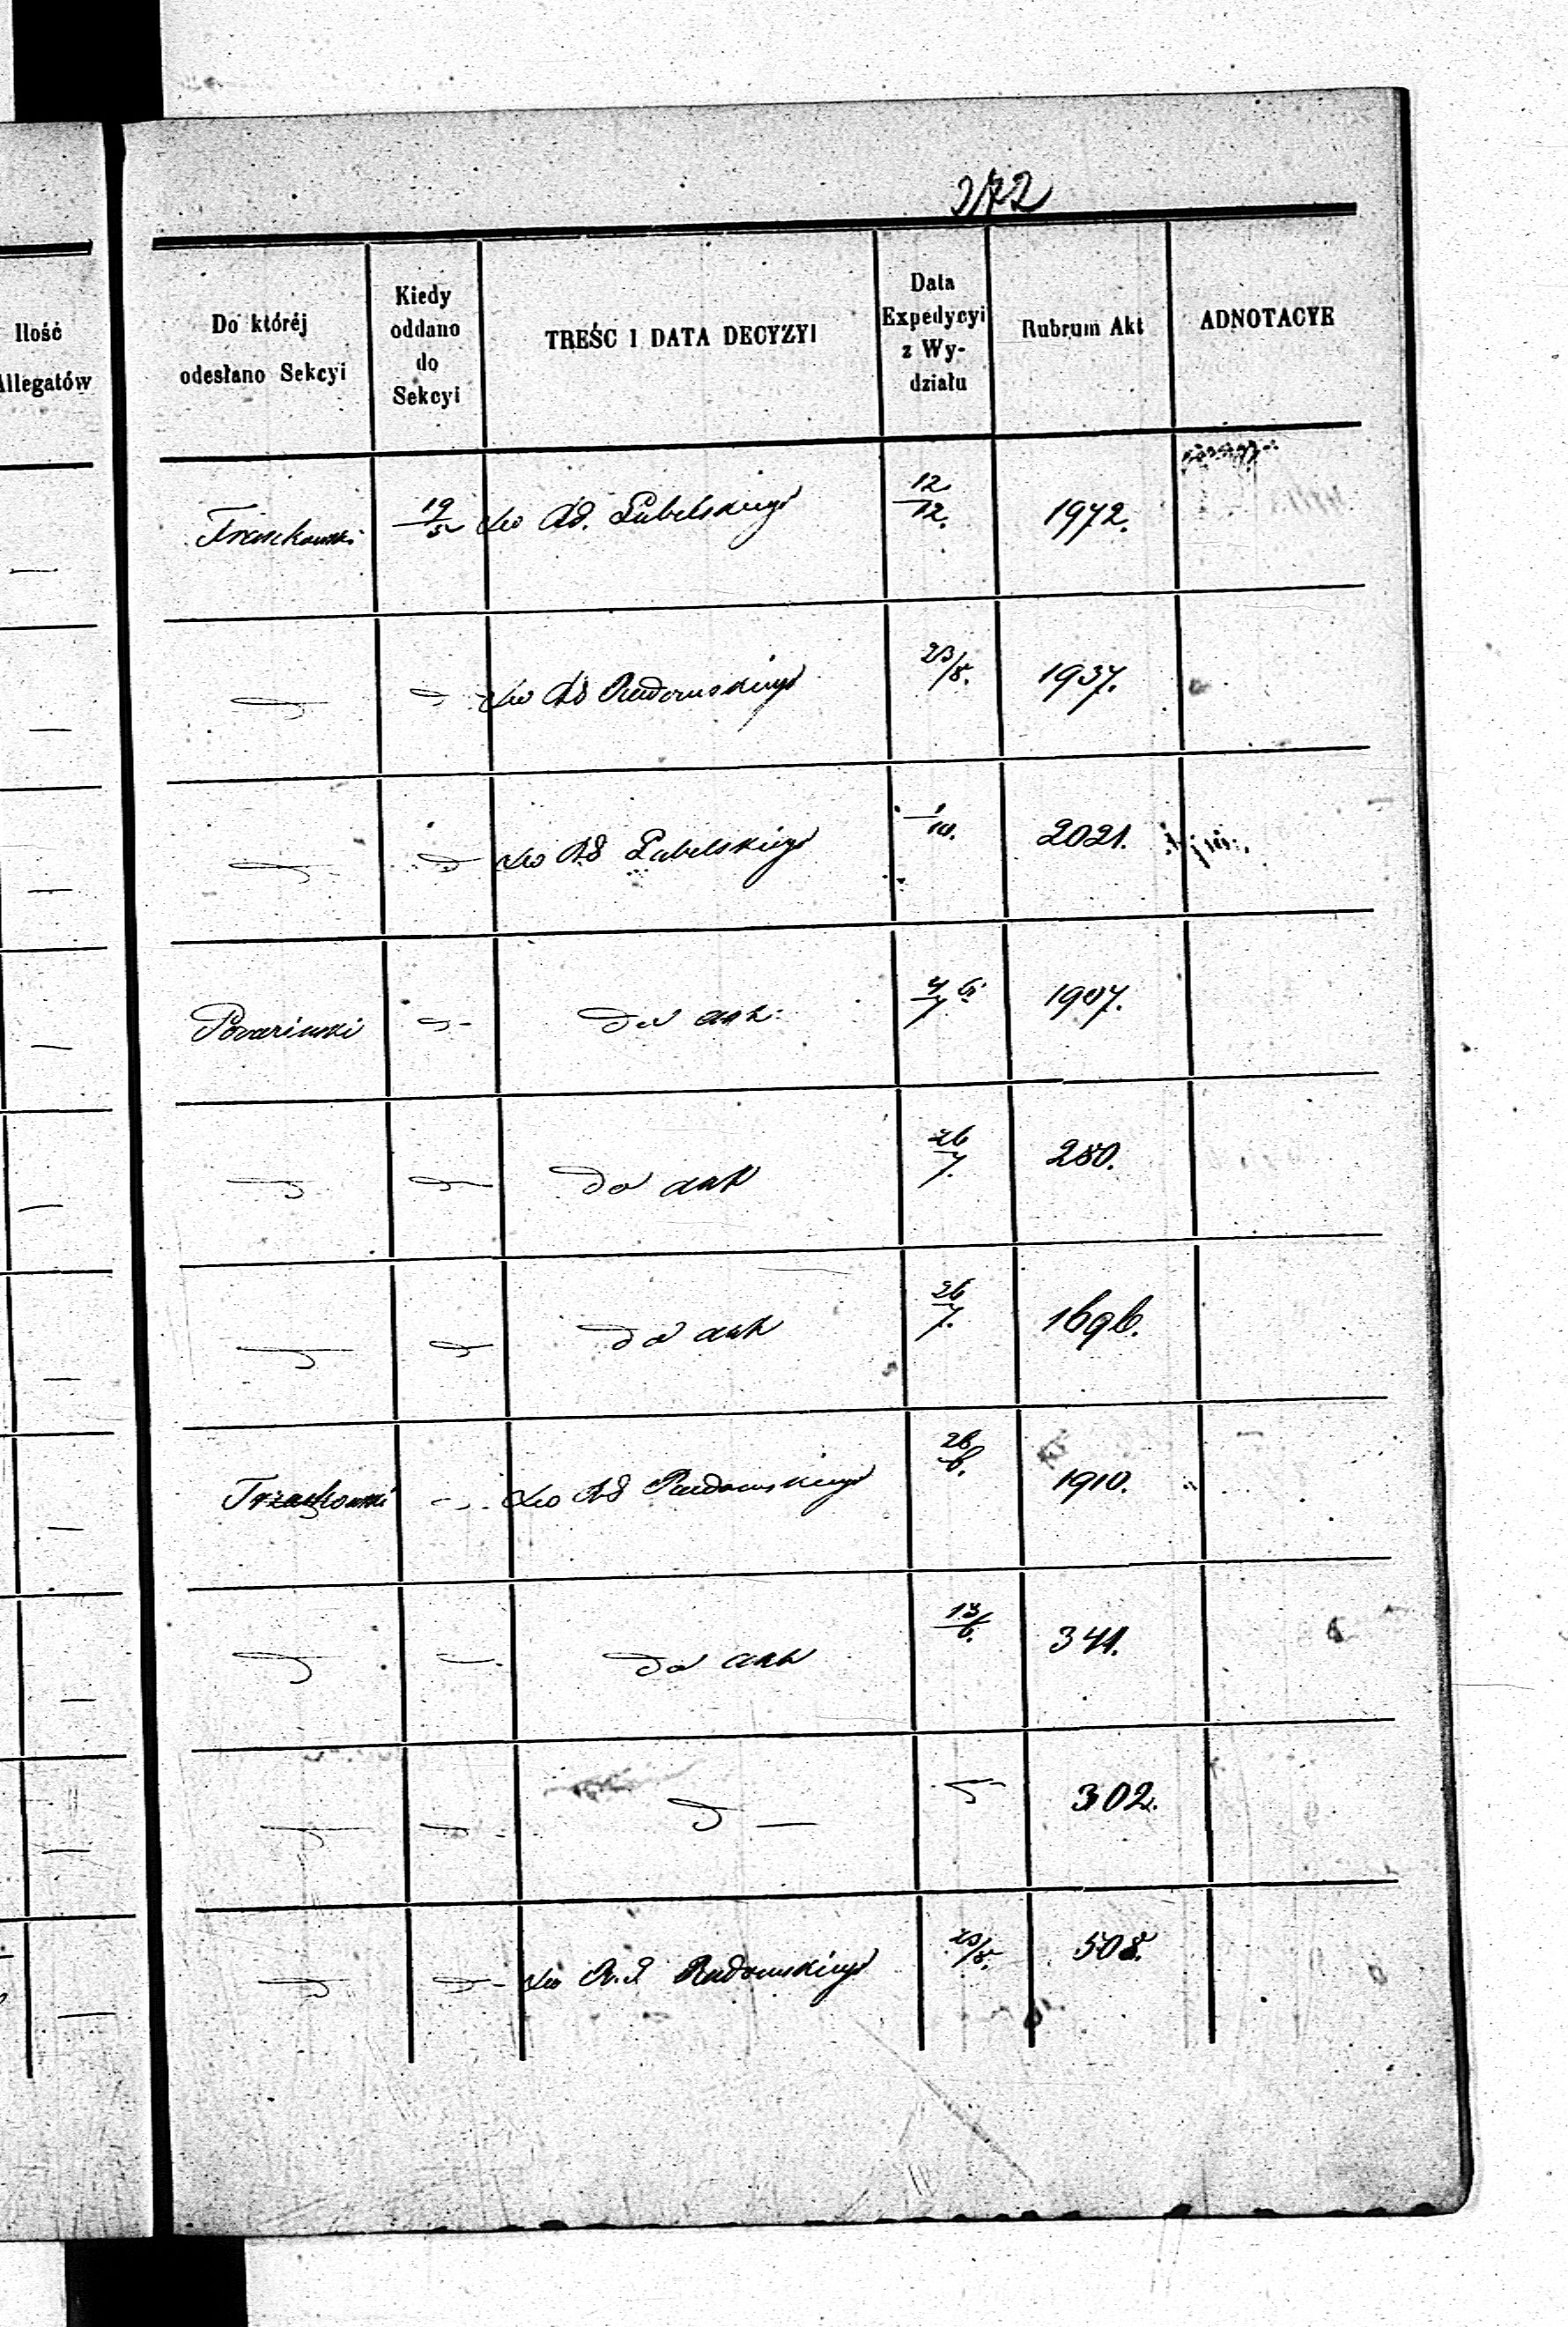 272
Ilość
Allegatów
Do któréj
odesłano Sekcyi
Kiedy
oddano
do
Sekcyi
TREŚC I DATA DECYZYI
Data
Expedycyi
z Wy-
działu
Rubrum Akt
ADNOTACYE
19/5 do Rd. Lubelskiego 12/12. 1972.
do Rd Radomskiego 23/8. 1937.
do Rd Lubelskiego 1/10. 2021.
do akt 1907.
do akt 26/7. 280.
do akt 26/7. 1696.
Trzaskowski do Rd Radomskiego 26/6. 1910.
do akt 13/6. 341.
302.
do R. d Radomskiego 23/8. 508.